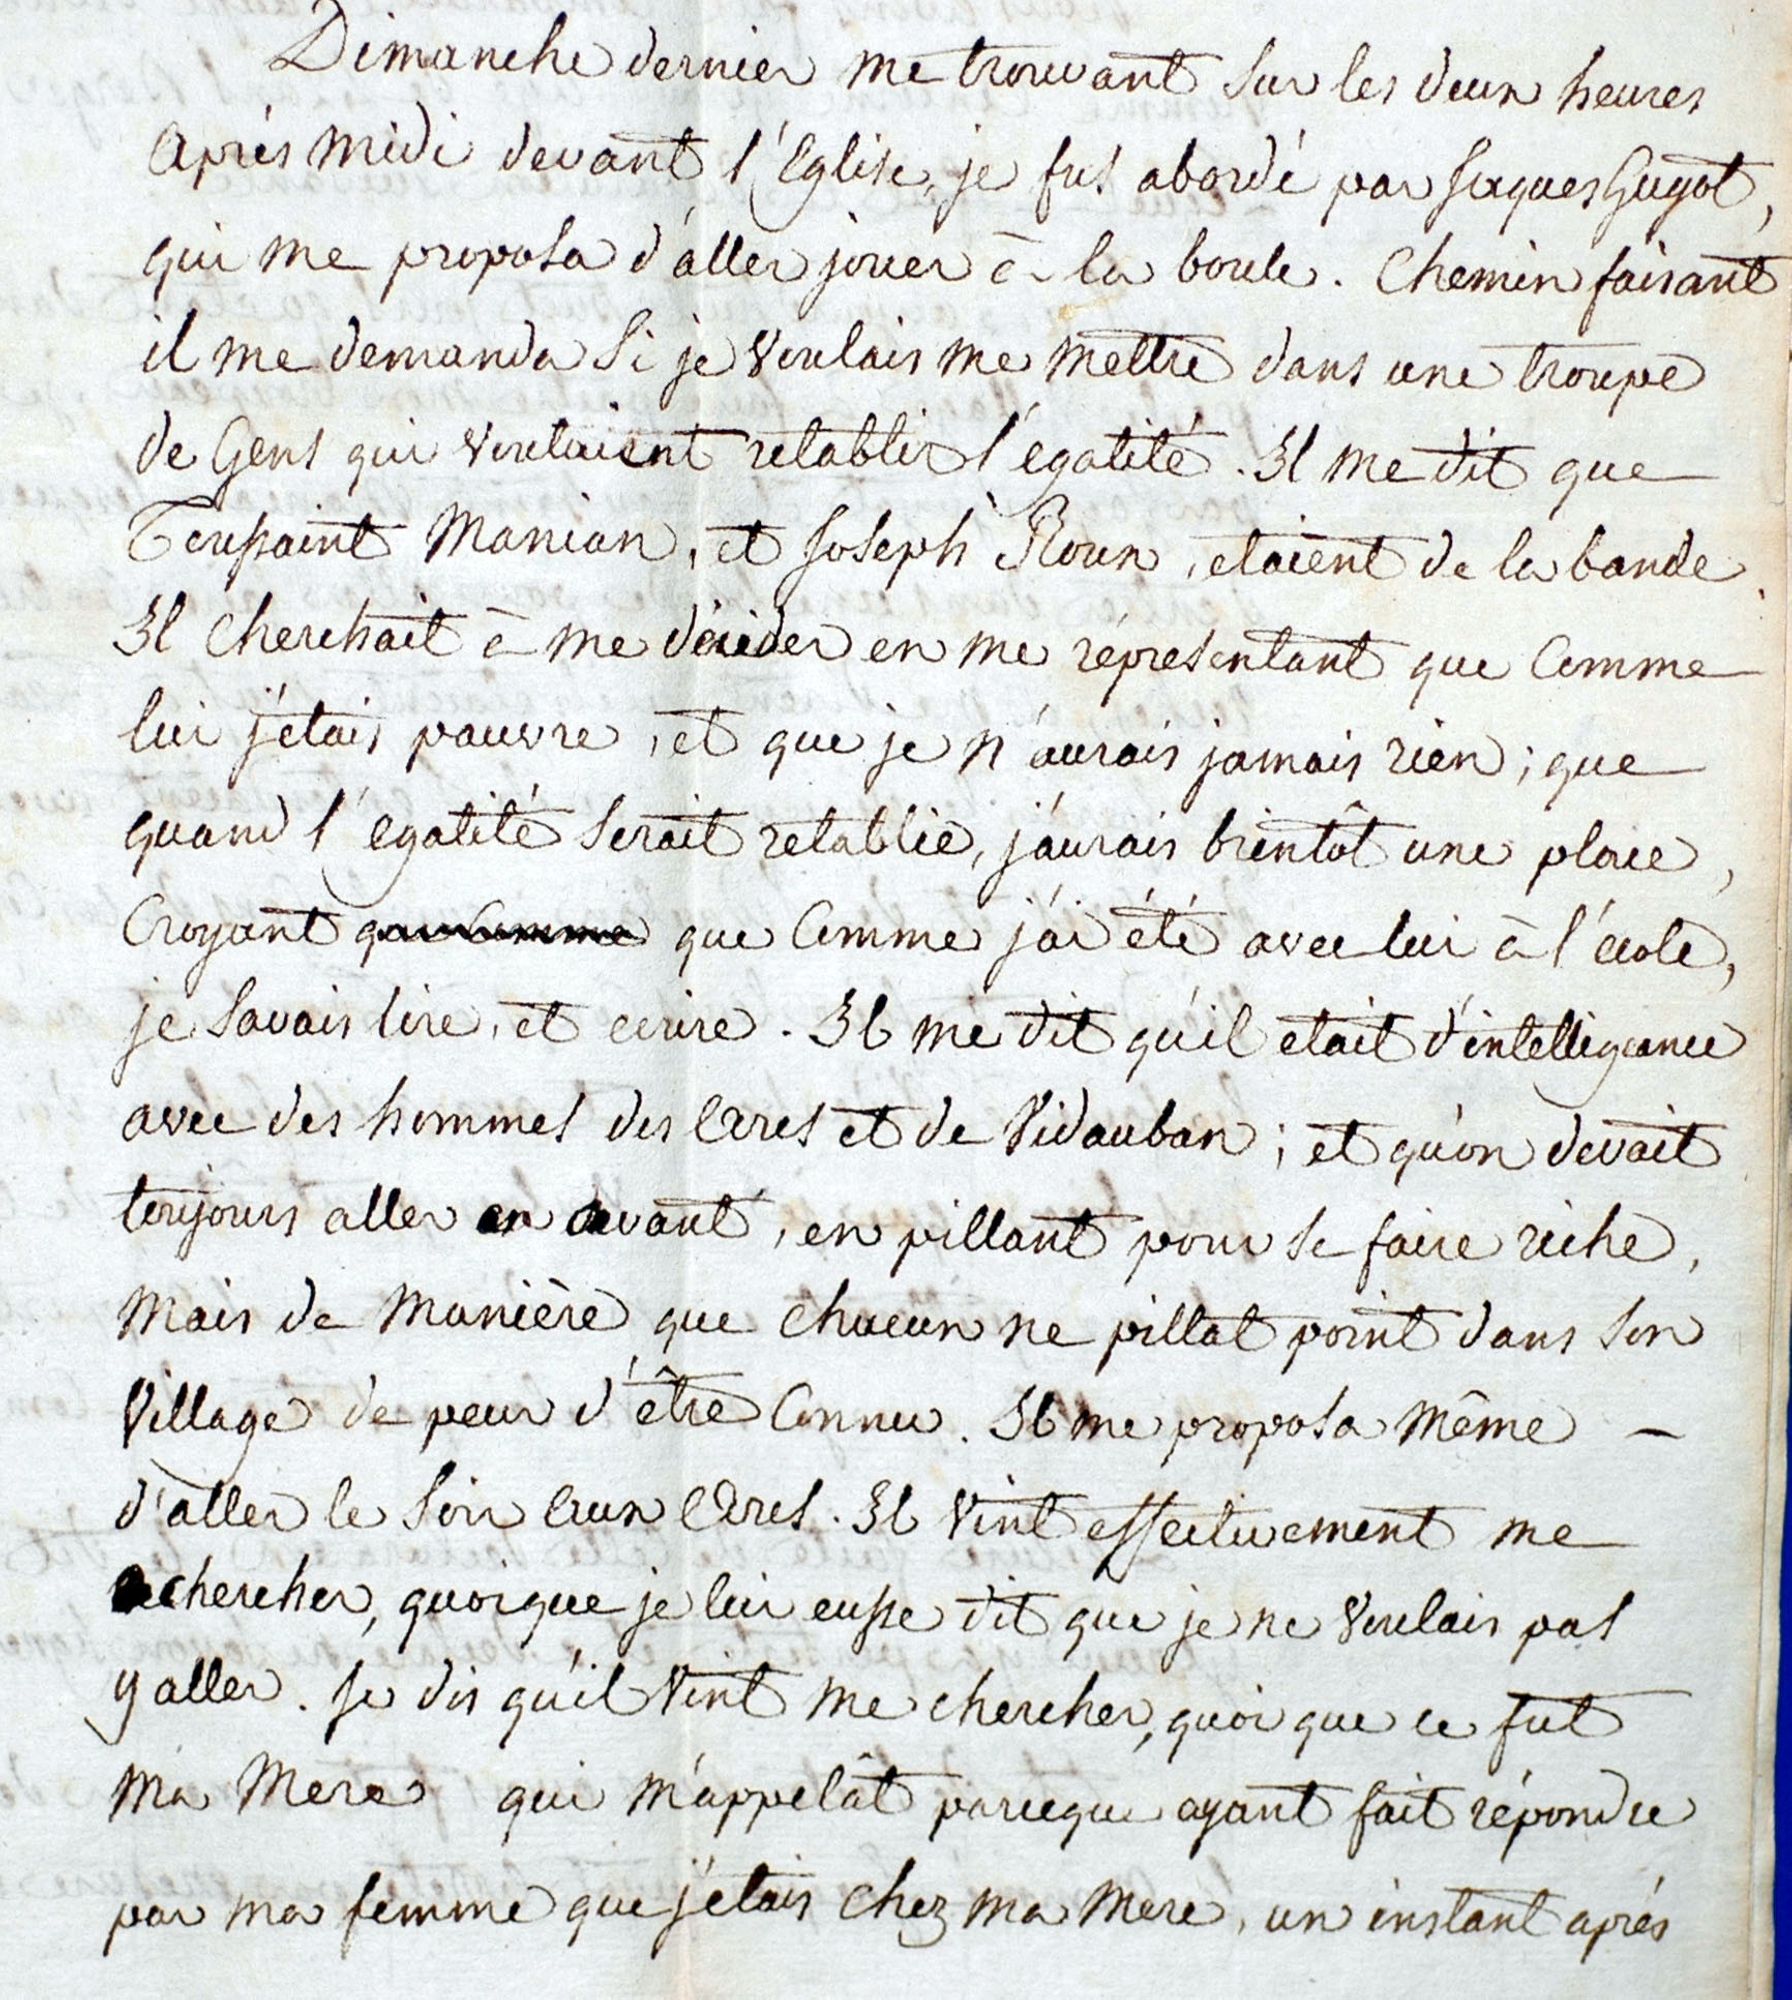 Dimanche dernier me trouvant sur les deux heures
après midi devant l'Eglise, je fus abordé par Jacques Guyot,
qui me proposa d'aller jouer à la boule. Chemin faisant
il me demanda si je voulais me mettre dans une troupe
de Gens qui voulaient retablir l'egalité. Il me dit que
Toussaint Manian, et Joseph Roux, etaient de la bande
Il cherchait à me décider en me réprésentant que comme
lui j'étais pauvre, et que je n'aurais jamais rien; que
quand l'egalité serait retablie, j'aurais bientôt une place,
Croyant que comme j'ai été avec lui à l'école,
je savais lire, et ecrire. Il me dit qu'il etait d'intelligeance
avec des hommes des Arcs et de Vidauban; et qu'on devait
toujours aller en avant, en pillant pour se faire riche,
mais de manière que chacun ne pillat point dans son
Village de peur d'être connu. Il me proposa même –
d'aller le soir aux Arcs. Il vint effectivement me
chercher, quoique je lui eusse dit que je ne voulais pas
y aller. Je dis qu'il vint me chercher, quoi que ce fut
ma mere qui m'appelât parceque ayant fait répondre
par ma femme que j'étais chez ma mere, un instant après